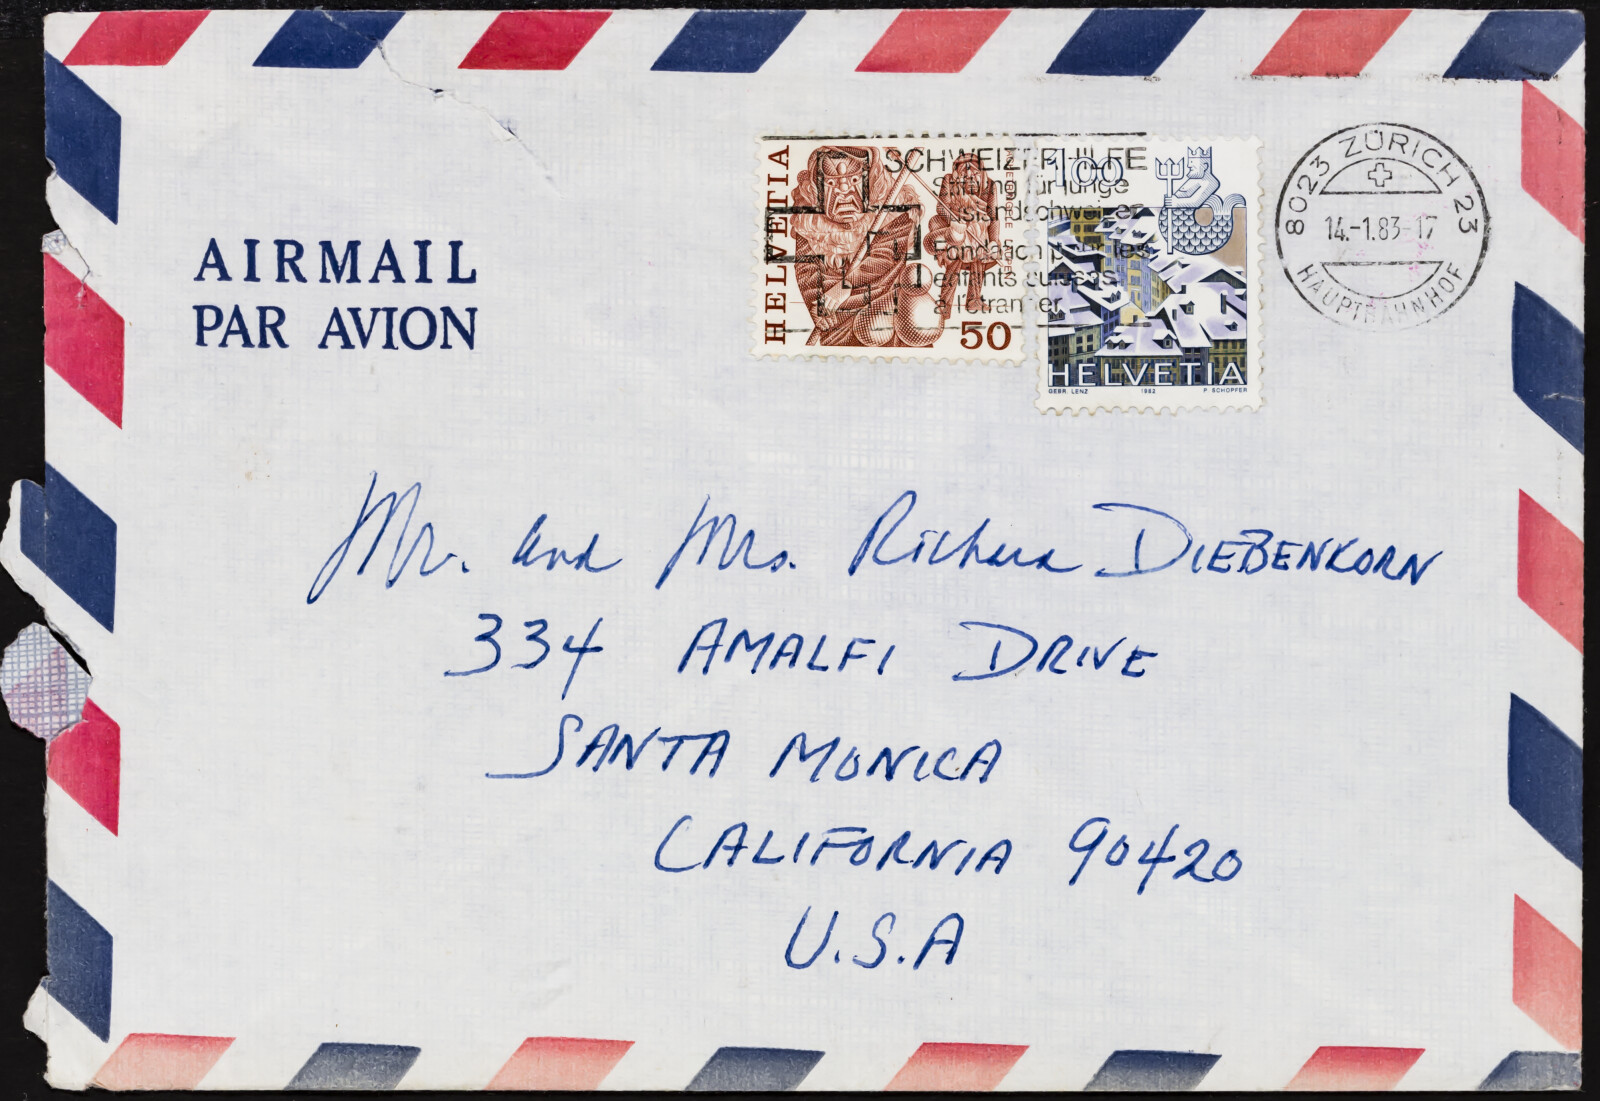 AIRMAIL
PAR AVION
HELVETIA
50
SCHWEIZERHILFE
Stiftung für junge
Auslandschweizer
Fondation pour les
enfants suisses
à l'étranger
100
HELVETIA
GEBR. LENZ 1982 P. SCHOPFER
8023 ZÜRICH 23
14.-1.83-17
HAUPTBAHNHOF
Mr. and Mrs. Richard DIEBENKORN
334 AMALFI DRIVE
SANTA MONICA
CALIFORNIA 90420
U.S.A